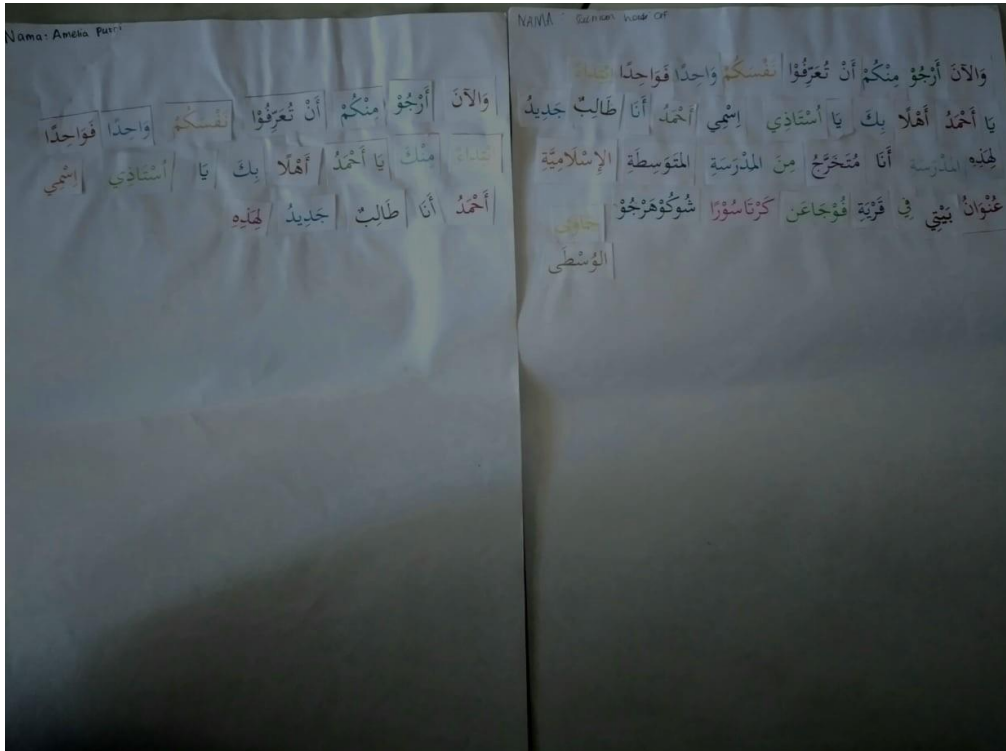 Nama: Amelia Putri
وَالآنَ أَرْجُوْ مِنْكُمْ أَنْ تُعَرِّفُوْا نَفْسَكُمْ وَاحِدًا فَوَاحِدًا
مِنْكَ يَا أَحْمَدُ أَهْلًا بِكَ يَا أُسْتَاذِي اِسْمِي
أَحْمَدُ أَنَا طَالِبٌ جَدِيدُ لِهَذِهِ
NAMA :
وَالآنَ أَرْجُوْ مِنْكُمْ أَنْ تُعَرِّفُوْا نَفْسَكُمْ وَاحِدًا فَوَاحِدًا
يَا أَحْمَدُ أَهْلًا بِكَ يَا أُسْتَاذِي اِسْمِي أَحْمَدُ أَنَا طَالِبٌ جَدِيدُ
لِهَذِهِ المَدْرَسَةِ أَنَا مُتَخَرَّجُ مِنَ المَدْرَسَةِ المُتَوَسِطَةِ الإِسْلَامِيَّةِ
عُنْوَانُ بَيْتِي فِي قَرْيَةِ فُوْجَاعَن كَرْتَاسُوْرَا شُوكُوْهَرْجُوْ جَاوَى
الوُسْطَى